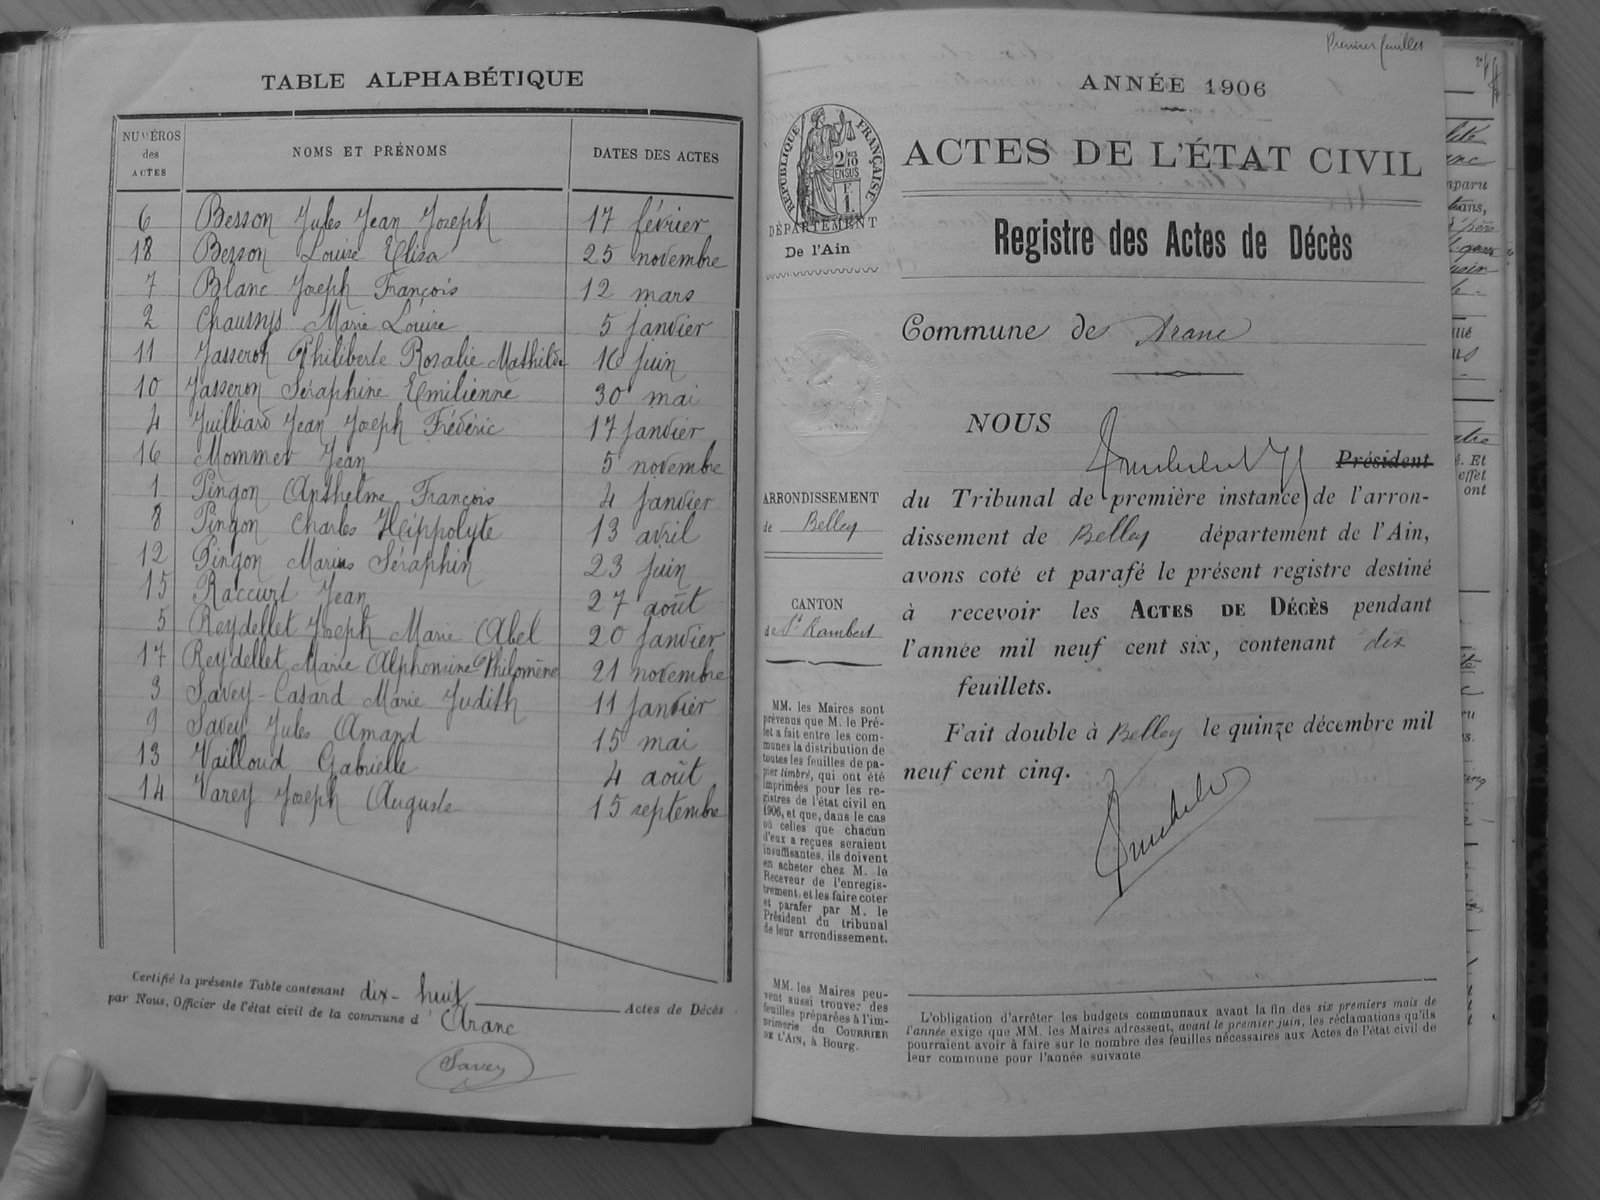 TABLE ALPHABÉTIQUE
NUMÉROS des ACTES
NOMS ET PRÉNOMS
DATES DES ACTES
6 Besson Jules Jean Joseph 17 février
18 Besson Louise Elisa 25 novembre
7 Blanc Joseph François 12 mars
2 Chaussys Marie Louise 5 janvier
11 Jasseron Philiberte Rosalie Mathilde 16 juin
10 Jasseron Séraphine Emilienne 30 mai
4 Juilliard Jean Joseph Frédéric 17 janvier
16 Mommer Jean 5 novembre
1 Pingon Anthelme François 4 janvier
8 Pingon Charles Hippolyte 13 avril
12 Pingon Marius Séraphin 23 juin
15 Raccurt Jean 27 août
5 Reydellet Joseph Marie Abel 20 janvier
17 Reydellet Marie Alphonsine Philomène 21 novembre
3 Savey-Casard Marie Judith 11 janvier
9 Savey Jules Amand 15 mai
13 Vailloud Gabrielle 4 août
14 Varey Joseph Auguste 15 septembre
Certifié la présente Table contenant dix-huit Actes de Décès
par Nous, Officier de l'état civil de la commune d'Aranc
Savey
Premier feuillet
ANNÉE 1906
RÉPUBLIQUE FRANÇAISE
2/10 EN SUS
ACTES DE L'ÉTAT CIVIL
DÉPARTEMENT
De l'Ain
Registre des Actes de Décès
Commune de Aranc
NOUS
Président
ARRONDISSEMENT
de Belley
du Tribunal de première instance de l'arron-
dissement de Belley département de l'Ain,
avons coté et parafé le présent registre destiné
CANTON
de St Rambert
à recevoir les ACTES DE DÉCÈS pendant
l'année mil neuf cent six, contenant dix
feuillets.
Fait double à Belley le quinze décembre mil
neuf cent cinq.
MM. les Maires sont
prévenus que M. le Pré-
fet a fait entre les com-
munes la distribution de
toutes les feuilles de pa-
pier timbré, qui ont été
imprimées pour les re-
gistres de l'état civil en
1906, et que, dans le cas
où celles que chacun
d'eux a reçues seraient
insuffisantes, ils doivent
en acheter chez M. le
Receveur de l'enregis-
trement, et les faire coter
et parafer par M. le
Président du tribunal
de leur arrondissement.
MM. les Maires peu-
vent aussi trouver des
feuilles préparées à l'im-
primerie du COURRIER
DE L'AIN, à Bourg.
L'obligation d'arrêter les budgets communaux avant la fin des six premiers mois de
l'année exige que MM. les Maires adressent, avant le premier juin, les réclamations qu'ils
pourraient avoir à faire sur le nombre des feuilles nécessaires aux Actes de l'état civil de
leur commune pour l'année suivante